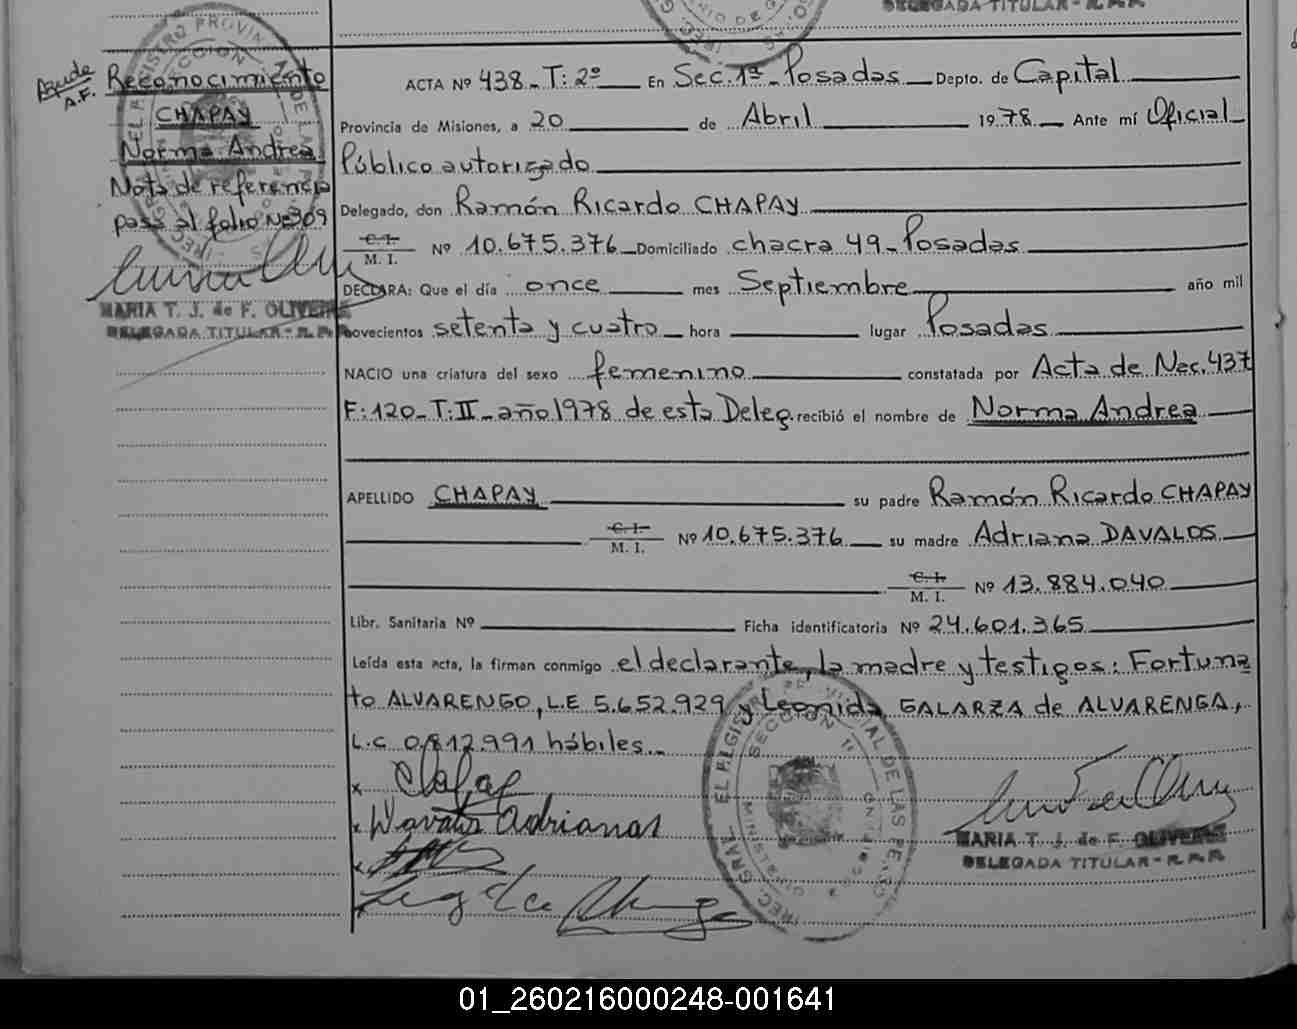 DELEGADA TITULAR - R.P.P.
Ayuda
A.F.
Reconocimiento
CHAPAY
Norma Andrea
Nota de referencia
pasa al folio Nº 309
MARIA T. J. de F. OLIVERIS
DELEGADA TITULAR - R.P.P.
ACTA Nº 438 - T: 2º En Sec. 1ª - Posadas Depto. de Capital
Provincia de Misiones, a 20 de Abril 1978 Ante mí Oficial
Público autorizado
Delegado, don Ramón Ricardo CHAPAY
C. I.
M. I. Nº 10.675.376 Domiciliado chacra 49 - Posadas
DECLARA: Que el día once mes Septiembre año mil
novecientos setenta y cuatro hora lugar Posadas
NACIO una criatura del sexo femenino constatada por Acta de Nac. 437
F: 120 - T: II - año 1978 de esta Deleg. recibió el nombre de Norma Andrea
APELLIDO CHAPAY su padre Ramón Ricardo CHAPAY
C. I.
M. I. Nº 10.675.376 su madre Adriana DAVALOS
C. I.
M. I. Nº 13.884.040
Libr. Sanitaria Nº Ficha identificatoria Nº 24.601.365
Leída esta acta, la firman conmigo el declarante, la madre y testigos: Fortuna
to ALVARENGO, L.E 5.652.929 y Leonida GALARZA de ALVARENGA,
L.C 0.812.991 hábiles.
x Chapay
x Davalos Adriana
x
MARIA T. J. de F. OLIVERIS
DELEGADA TITULAR - R.P.P.
01_260216000248-001641